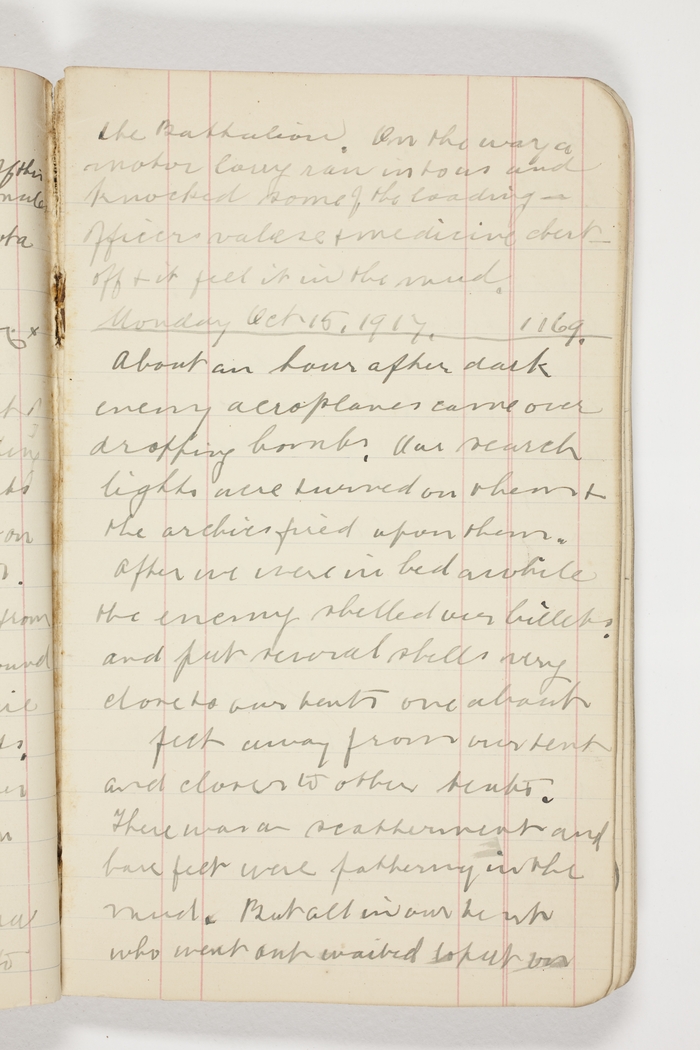 the Battalion. On the way a
motor lorry ran into us and
knocked some of the loading -
Officers valese & medicine chest -
off & it fell it in the mud.
Monday Oct 15, 1917. 1169.
About an hour after dark
enemy aeroplanes came over
dropping bombs. Our search
lights were turned on them &
the archies fired upon them.
After we were in bed awhile
the enemy shelled our billets.
and put several shells very
close to our tents one about
feet away from our tent
and closer to other tents.
There was a scatterment and
bare feet were pattering in the
mud. But all in our tent
who went out waited to put on